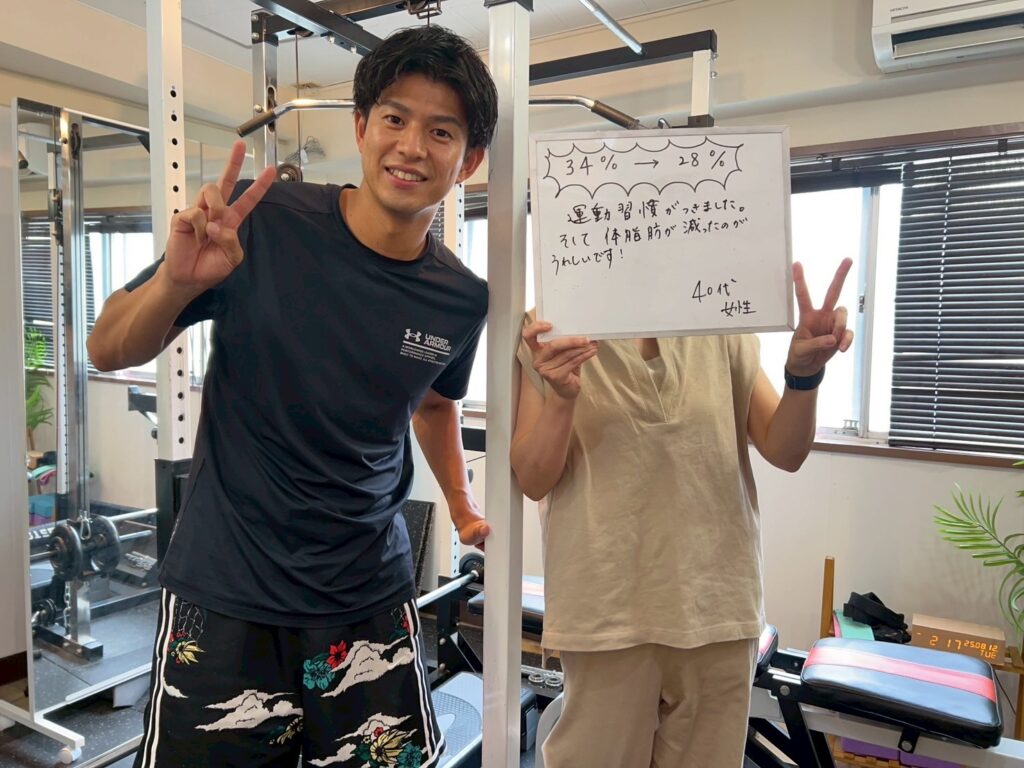 HITACHI
34% → 28%
運動習慣がつきました。
そして 体脂肪が 減ったのが
うれしいです!
40代
女性
UNDER
ARMOUR
2:17 250812
TUE